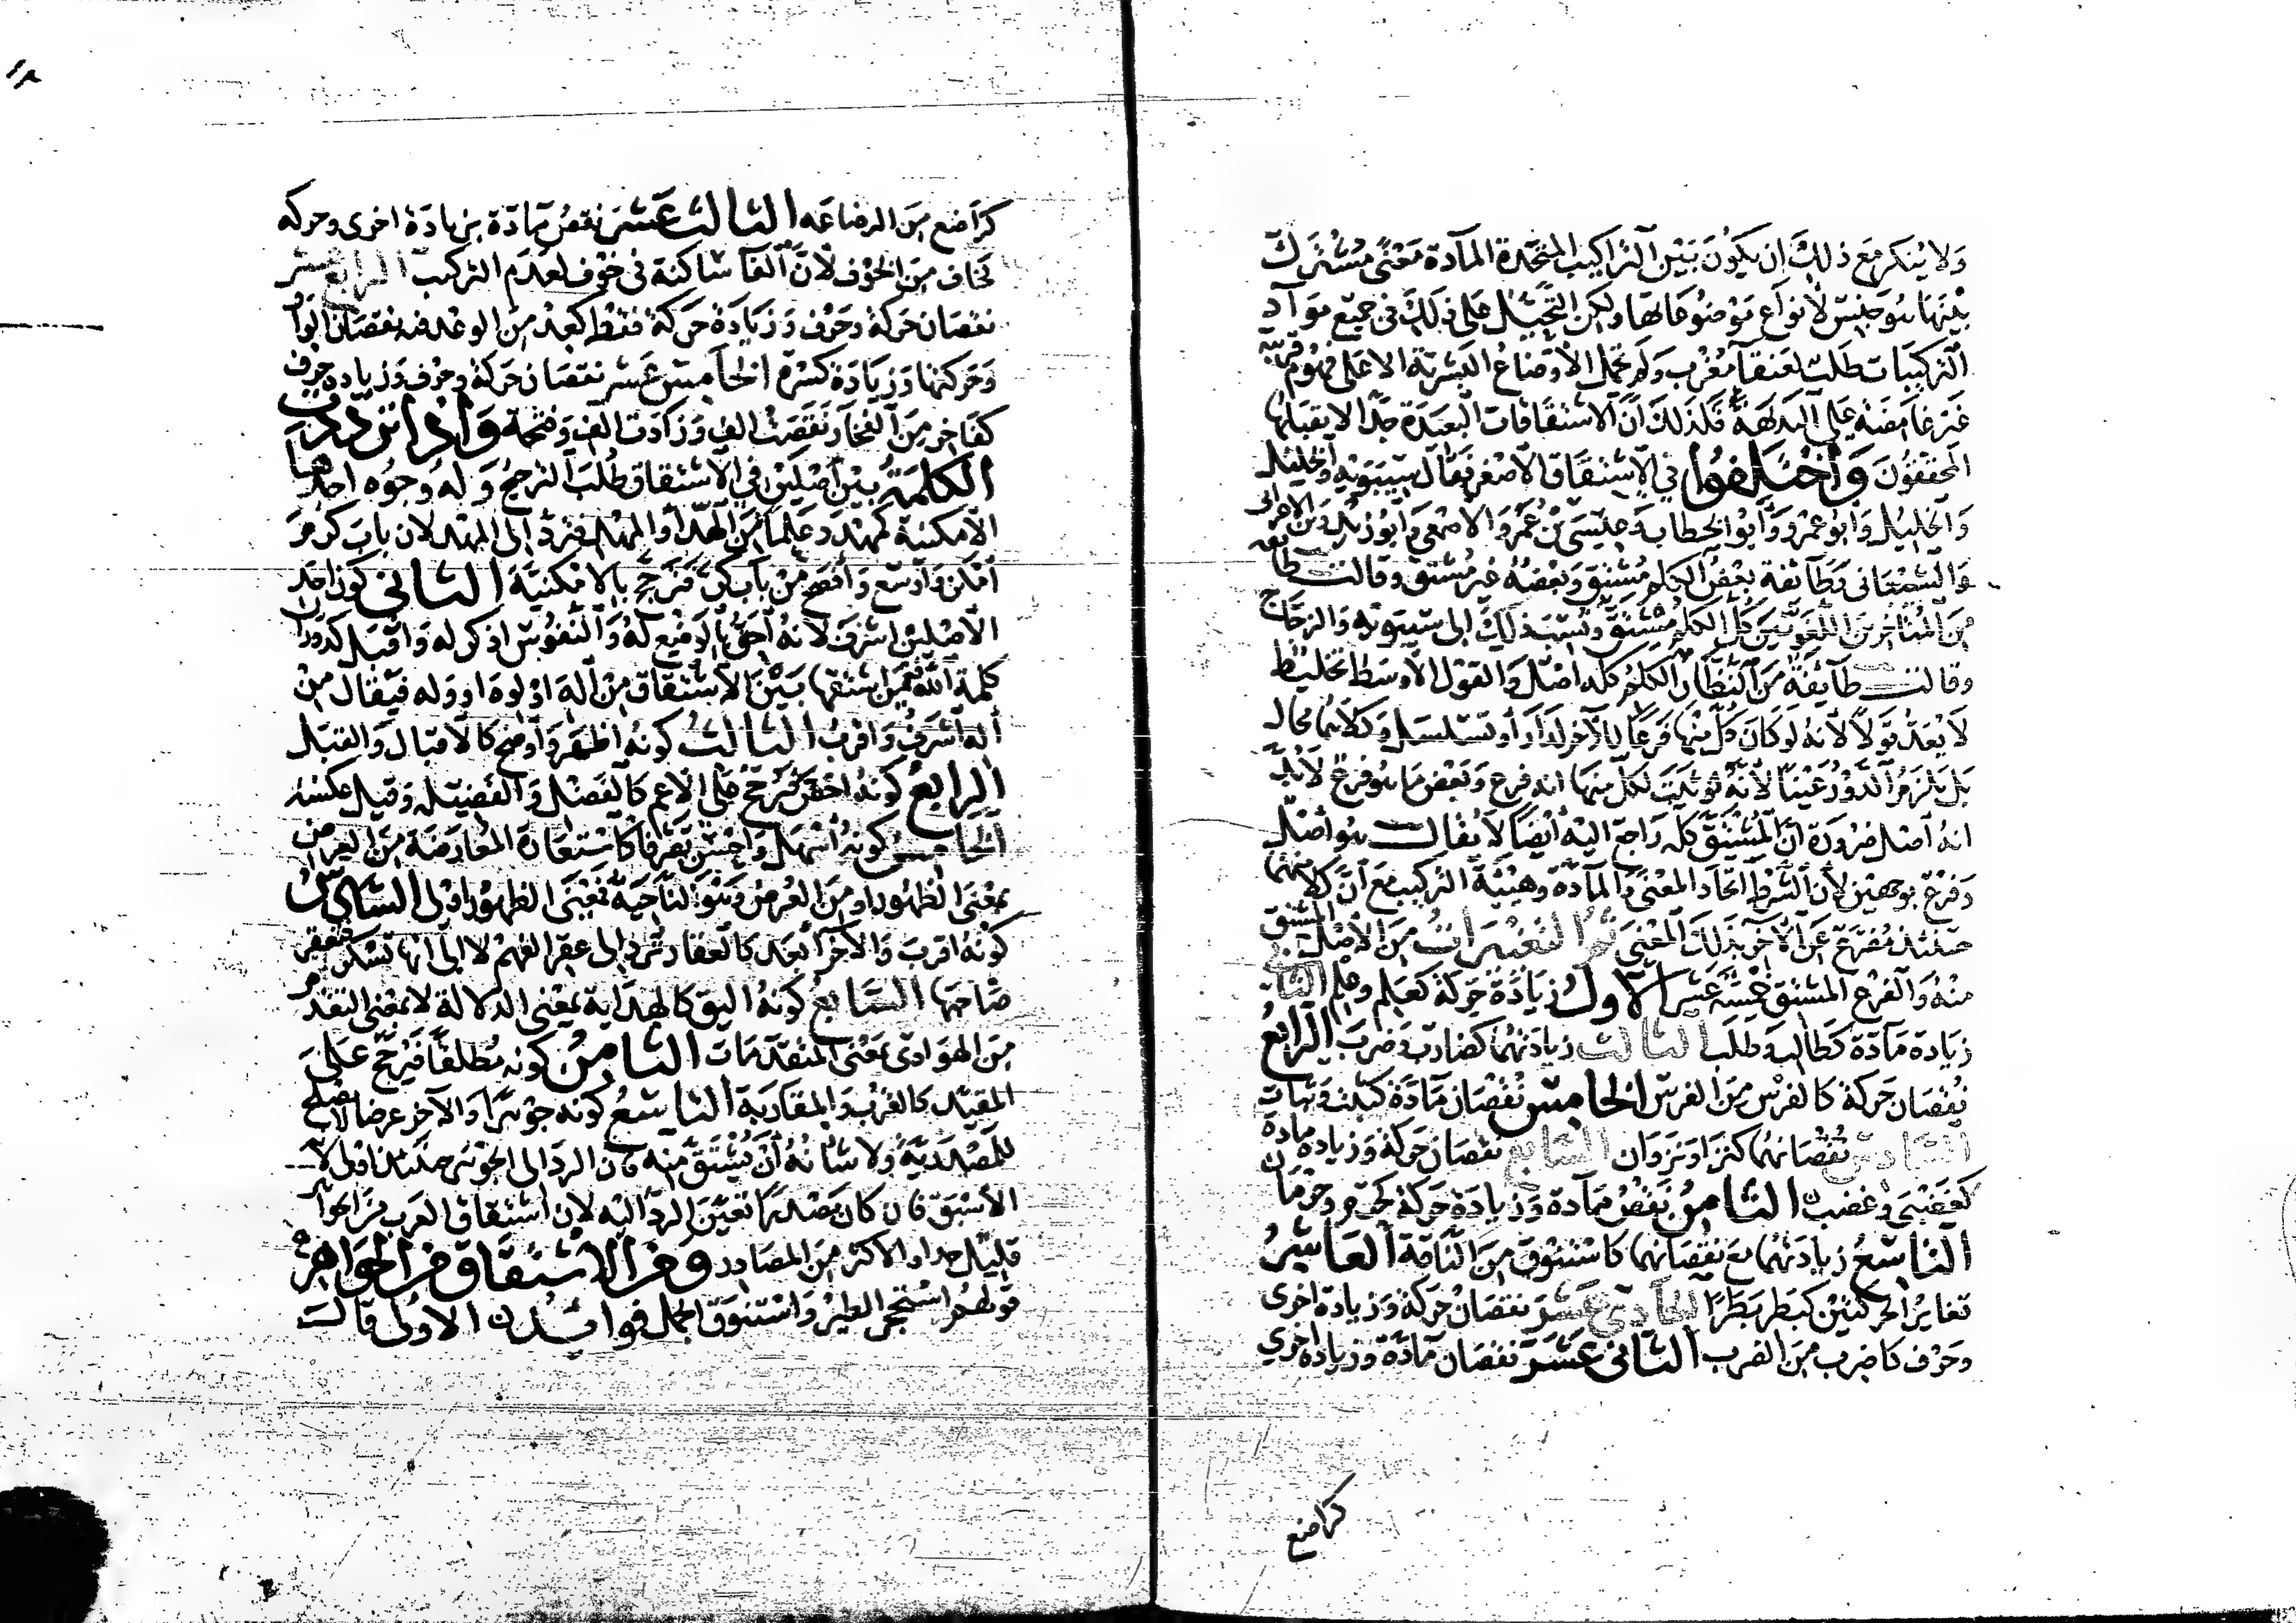 ولا ينكر مع ذلك ان يكون بين التراكيب المتحدة المآدة معنًى مشترك
بينها هو جنس لانواع موضوعاتها ولكن التحيل على ذلك في جميع موآد
التركيبات طلب لعنقآ مغرب ولم تحمل الاوضاع البشرية الا على فهوم قريبة
غير غامضة على البديهة فلذلك ان الاشتقاقات البعيدة جدًا لا يقبلها
المحققون واختلفوا في الاشتقاق الاصغر فقال سيبويه والخليل
والخليل وابو عمرو وابو الخطاب وعيسى بن عمر والاصمعي وابو زيد وابن الاعرابى
والشيبانى وطآئفة بعض الكلم مشتق وبعضه غير مشتق وقالت طائفة
من المتاخرين اللغويين كل الكلم مشتق ونسب ذلك الى سيبويه والزجاج
وقالت طآيفة من النظار الكلم كله اصل والقول الاوسط تخليط
لا يعد قولاً لانه لو كان كل منها فرعًا للآخر لدار او تسلسل وكلاهما محال
بل يلزم الدور عينًا لانه يثبت لكل منها انه فرع وبعض ما هو فرع لا بد
انه اصل ضرورة ان المشتق كله راجع اليه ايضًا لا يقال هو اصل
وفرع بوجهين لان الشرط اتحاد المعنى والمآدة وهيئة التركيب مع ان كلا منهما
حينئذ مفرع عن الآخر بذلك المعنى ثم التغييرات من الاصل المشتق
منه والفرع المشتق خمسة عشر الاول زيادة حركة كعلم وعلم الثاني
زيادة مآدة كطالب وطلب الثالث زيادتهما كضارب وضرب الرابع
نقصان حركة كالفرس من الفرس الخامس نقصان مآدة كثبت وثبات
السادس نقصانهما كنزا ونزوان السابع نقصان حركة وزيادة مادة
كغضبى وغضب الثامن نقص مآدة وزيادة حركة كحرم وحرمان
التاسع زيادتهما مع نقصانهما كاستنوق من النّاقة العاشر
تغاير الحركتين كبطر بطرًا الحادي عشر نقصان حركة وزيادة اخرى
وحرف كاضرب من الضرب الثانى عشر نقصان مآدة وزيادة اخرى
كراضع
كراضع من الرضاعه الثالث عشر نقص مآدة بزيادة اخرى وحركه
كخاف من الخوف لان الفآ ساكنة في خوف لعدم التركيب الرابع عشر
نقصان حركة وحرف وزيادة حركة فقط كعد من الوعد فيه نقصان الواو
وحركتها وزيادة كسرة الخامس عشر نقصان حركة وحرف وزيادة حرف
كفاخر من الفخار نقصت الف وزادت الف وفتحة واذا ترددت
الكلمة بين اصلين في الاشتقاق طلب الترجيح وله وجوه احدها
الامكنية كمهدد علمًا من الهد او المهد فترد الى المهد لان باب كرم
امكن واوسع وافصح من باب كر فترجح بالامكنية الثاني كون احد
الاصلين اشرف لانه احق بالوضع له والنفوس اذكر له واقبل كدوران
كلمة الله فيمن اشتقها بين الاشتقاق من اله او لوه او وله فيقال من
اله اشرف واقرب الثالث كونه اظهر واوضح كالاقبال والقبل
الرابع كونه اخص فيرجح على الاعم كالفضل والفضيلة وقيل عكسه
الخامس كونه اسهل واحسن تصرفا كاشتقاق المعارضة من العرض
بمعنى الظهور او من العرض وهو الناحية فمعنى الظهور اولى السادس
كونه اقرب والآخر ابعد كالعقار ترد الى عقر الفهم لا الى انها تسكر فتعقر
صاحبها السابع كونه اليق كالهداية بمعنى الدلالة لا بمعنى التقدم
من الهوادى بمعنى المتقدمات الثامن كونه مطلقًا فيرجح على
المقيد كالقرب والمقاربة التاسع كونه جوهرًا والآخر عرضا لا يصلح
للمصدرية ولا شانه ان يشتق منه فان الرد الى الجوهر حينئذ اولى لانه
الاسبق فان كان مصدرًا تعين الرد اليه لان اشتقاق العرب من الجواهر
قليل جدا والاكثر من المصادر ومن الاشتقاق من الجواهر
قولهم استحجر الطين واستنوق الجمل فوائد الاولى قال